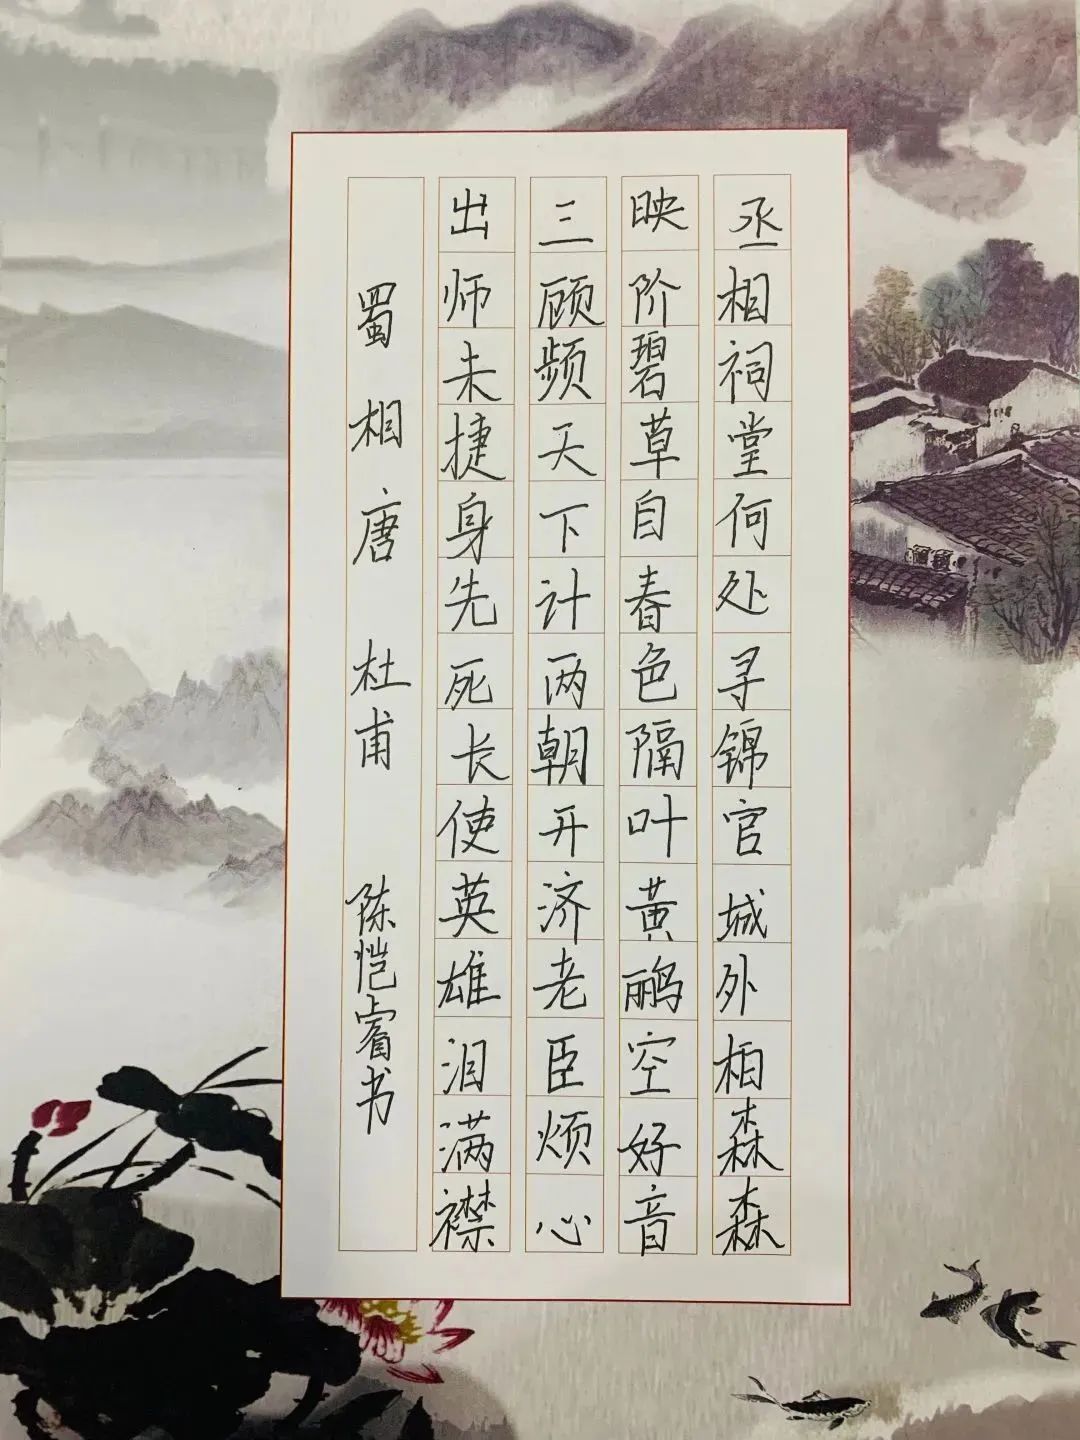 丞相祠堂何处寻锦官城外柏森森
映阶碧草自春色隔叶黄鹂空好音
三顾频天下计两朝开济老臣烦心
出师未捷身先死长使英雄泪满襟
蜀相 唐 杜甫 陈恺睿书